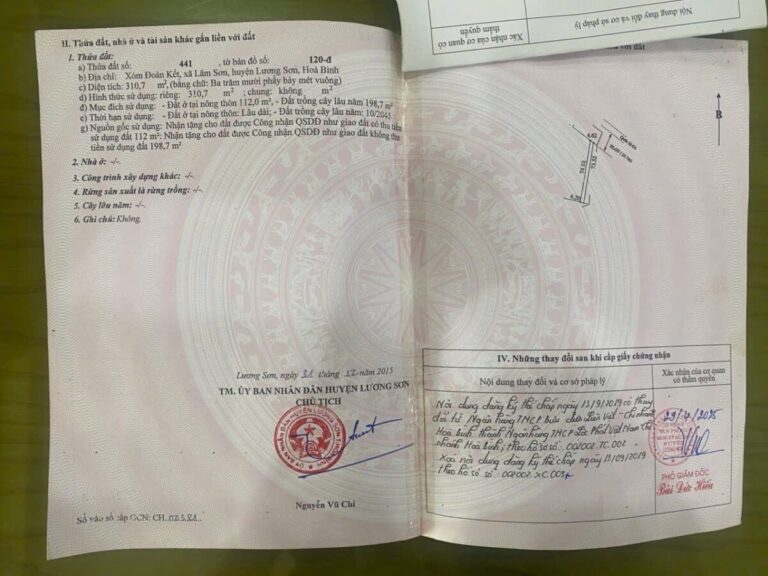 II. Thửa đất, nhà ở và tài sản khác gắn liền với đất
1. Thửa đất:
a) Thửa đất số: 441 , tờ bản đồ số: 120-đ
b) Địa chỉ: Xóm Đoàn Kết, xã Lâm Sơn, huyện Lương Sơn, Hoà Bình
c) Diện tích: 310,7 m², (bằng chữ: Ba trăm mười phẩy bảy mét vuông)
d) Hình thức sử dụng: riêng: 310,7 m²; chung: không m²
đ) Mục đích sử dụng: - Đất ở tại nông thôn 112,0 m², - Đất trồng cây lâu năm 198,7 m²
e) Thời hạn sử dụng: - Đất ở tại nông thôn: Lâu dài; - Đất trồng cây lâu năm: 10/2045
g) Nguồn gốc sử dụng: Nhận tặng cho đất được Công nhận QSDĐ như giao đất có thu tiền
sử dụng đất 112 m²; Nhận tặng cho đất được Công nhận QSDĐ như giao đất không thu
tiền sử dụng đất 198,7 m²
2. Nhà ở: -/-.
3. Công trình xây dựng khác: -/-.
4. Rừng sản xuất là rừng trồng: -/-.
5. Cây lâu năm: -/-.
6. Ghi chú: Không.
Lương Sơn, ngày 31 tháng 12 năm 2015
TM. ỦY BAN NHÂN DÂN HUYỆN LƯƠNG SƠN
CHỦ TỊCH
Nguyễn Vũ Chi
Số vào sổ cấp GCN: CH
Nội dung thay đổi và cơ sở pháp lý
Xác nhận của cơ quan có
thẩm quyền
B
4.62
74.02
73.32
IV. Những thay đổi sau khi cấp giấy chứng nhận
Nội dung thay đổi và cơ sở pháp lý
Xác nhận của cơ quan
có thẩm quyền
Nội dung đăng ký thế chấp ngày 13/9/2019 có thay
đổi từ Ngân hàng TMCP bưu điện Liên Việt - Chi nhánh
Hoà bình thành Ngân hàng TMCP Lộc Phát Việt Nam Chi
nhánh Hoà Bình, theo hồ sơ số: 002002.TC.002
Xoá nội dung đăng ký thế chấp ngày 13/09/2019
theo hồ sơ số 002002.XC.003
PHÓ GIÁM ĐỐC
Bùi Đức Hiếu